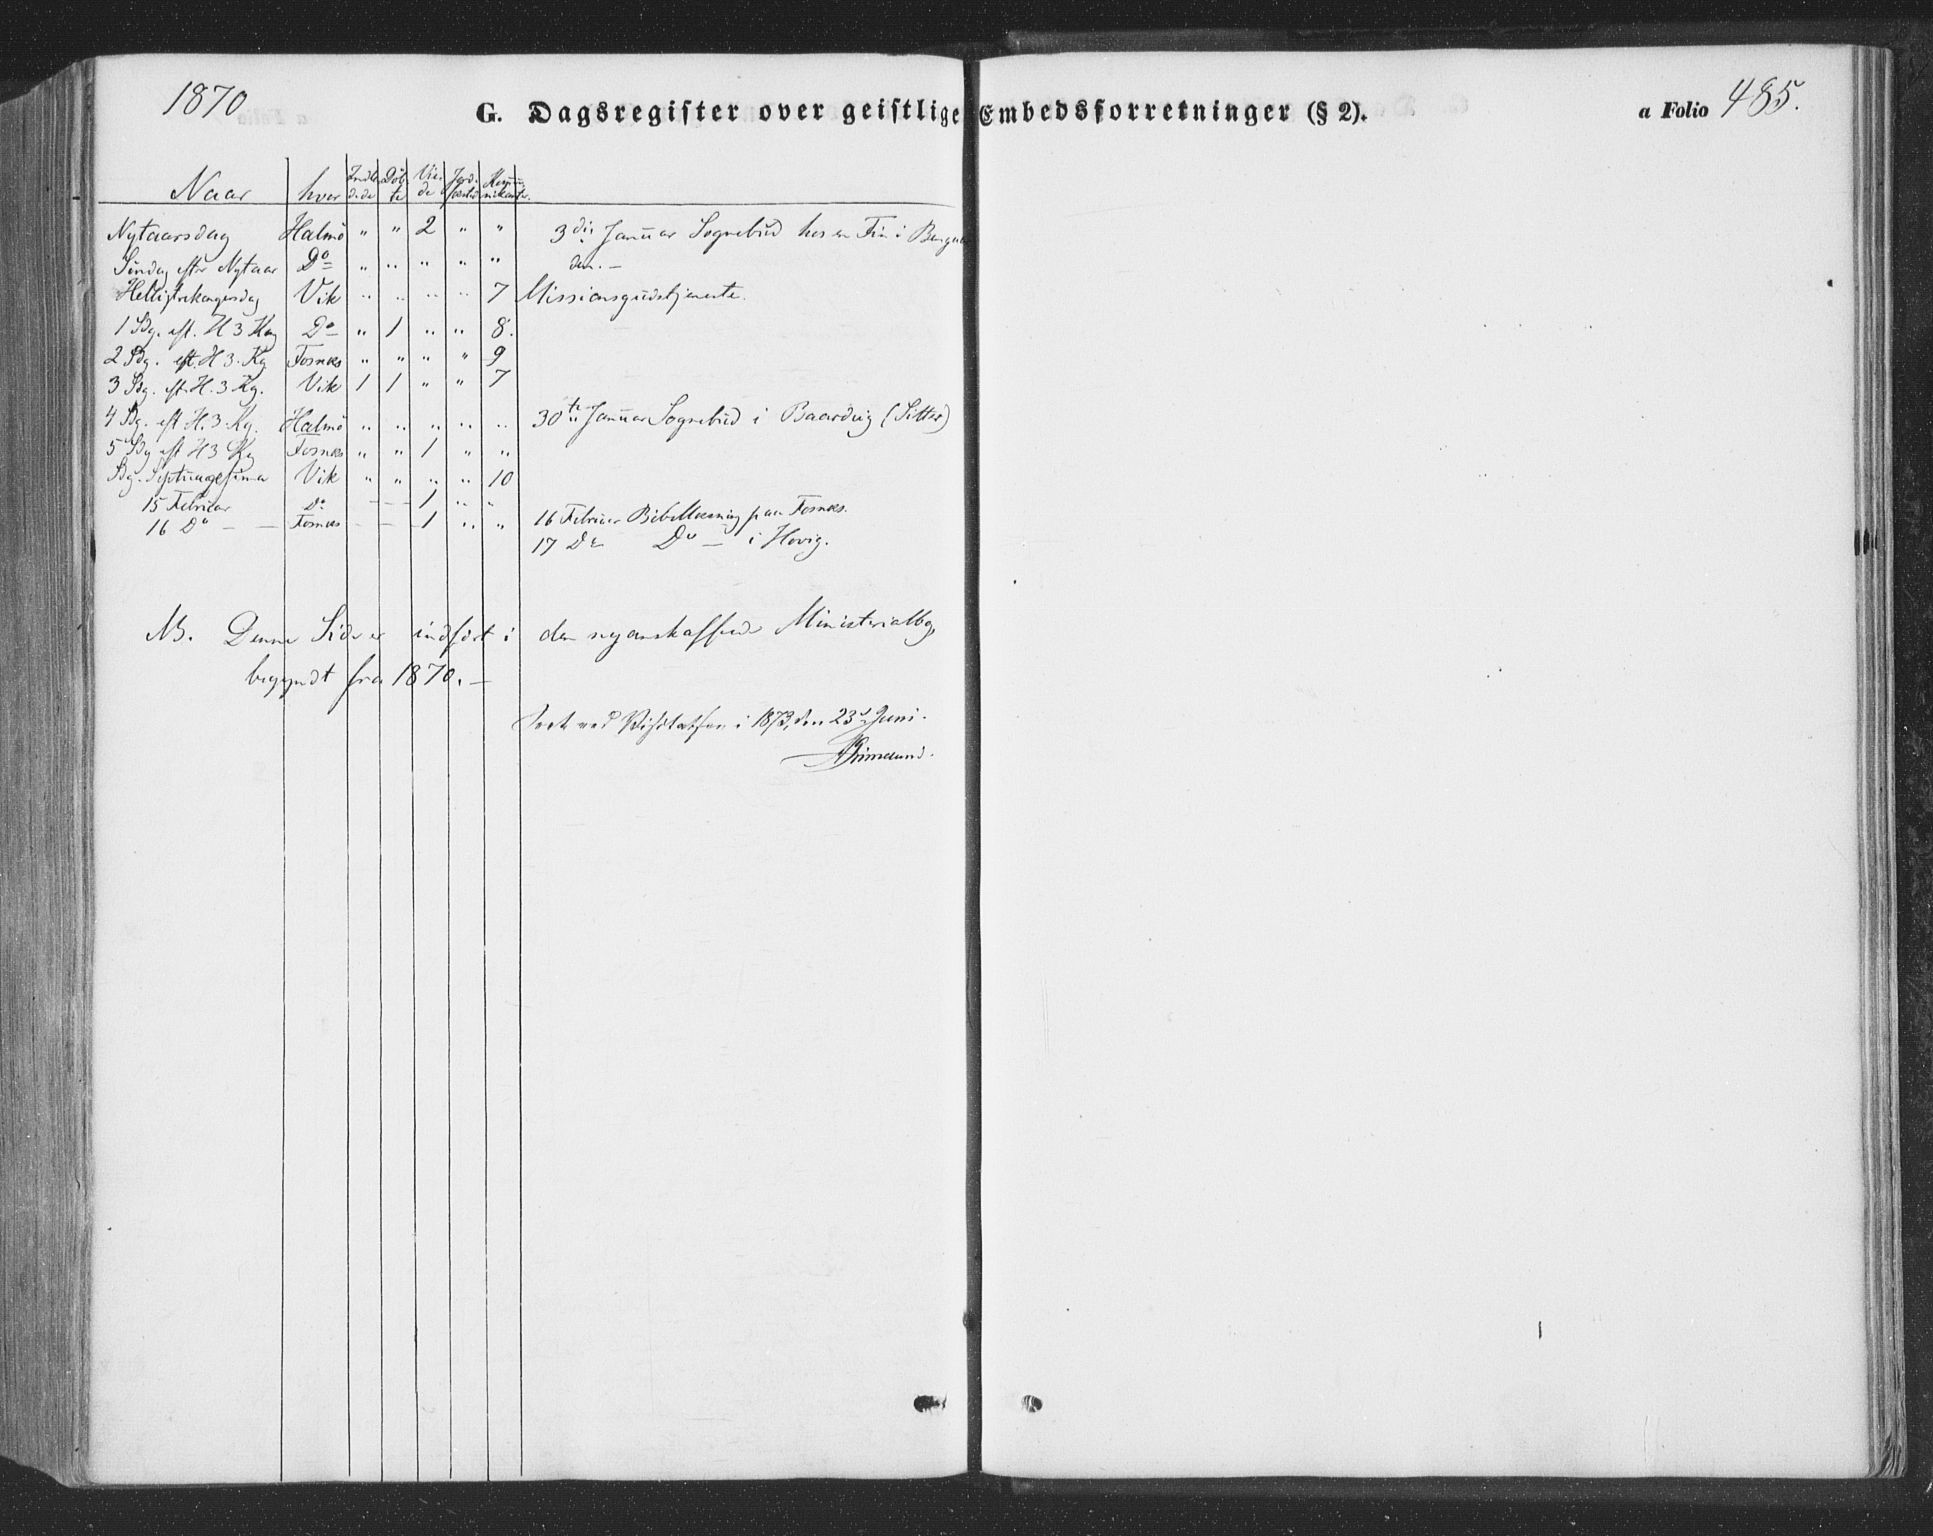 1870 G. Dagsregister over geistlige Embedsforretninger (§ 2). a Folio 485.
Naar hvor Indle- Døb- Vie- Jord- Kommu-
dede te de fæstede nikanter.
Nytaarsdag Halmö " " 2 " " 3die Januar Sognebud hos en Fin i
Söndag efter Nytaar Do " " " " " den. —
Helligtrekongersdag Vik " " " " 7 Missionsgudstjeneste.
1 Sdg. eft. H 3 Kg Do " 1 " " 8.
2 Sdg. eft. H. 3. Kg Fosnæs " " " " 9
3 Sdg. eft. H. 3 Kg. Vik 1 1 " " 7
4 Sdg. eft H. 3. Kg. Halmö " " " " " 30te Januar Sognebud i Baardvig (Sitter)
5 Sdg eft H 3 Kg Fosnæs " " 1 " "
Sdg. Septuagesima Vik " " " " 10
15 Februar Do — — 1 " "
16 Do — — Fosnæs — — 1 " " 16 Februar Bibellæsning paa Fosnæs.
17 De Do — i Hovig.
NB. Denne Side er indfört i den nyanskaffede Ministerialbog,
begyndt fra 1870. —
Seet ved Visitatsen i 1873, den 23de Juni.
Grimelund.